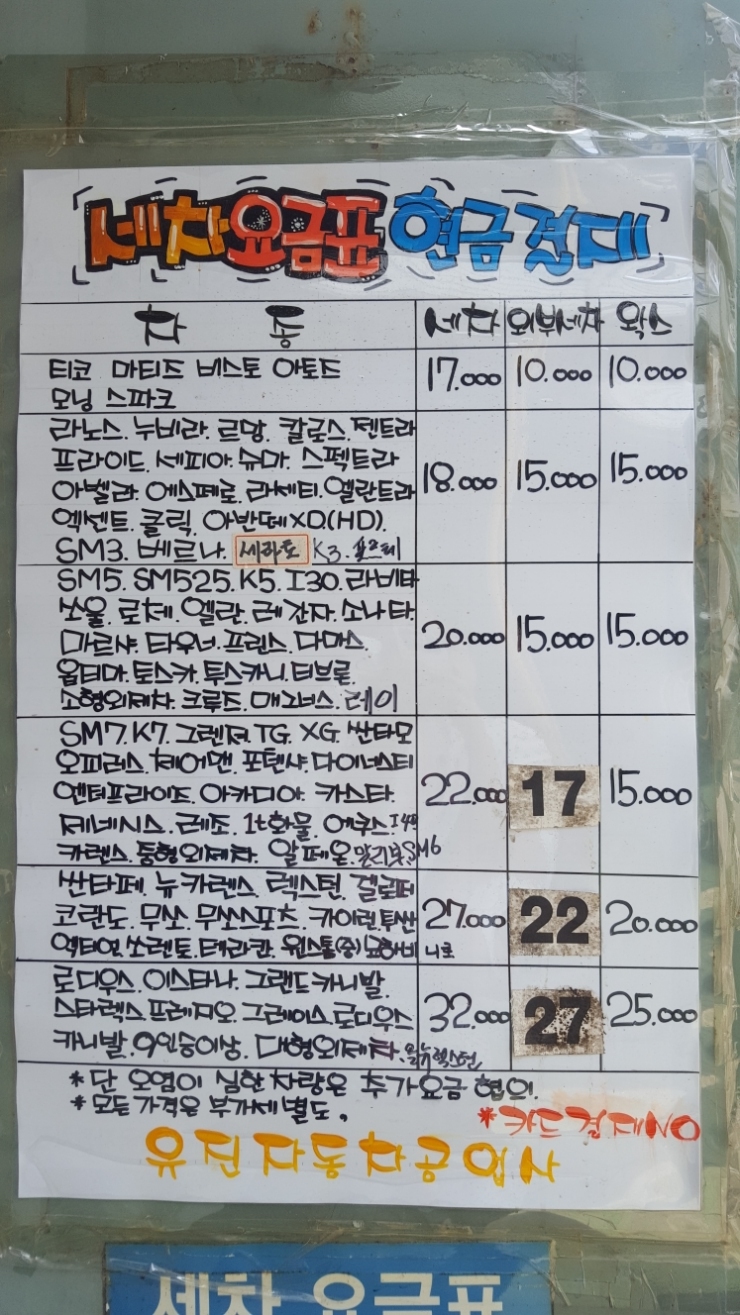 세차요금표 현금결재
차 종 세차 외부세차 왁스
티코 마티즈 비스토 아토즈
모닝 스파크
17.000 10.000 10.000
라노스. 누비라. 르망. 칼로스. 젠트라
프라이드. 세피아. 슈마. 스펙트라
아벨라. 에스페로. 라세티. 엘란트라
엑센트. 클릭. 아반떼XD.(HD).
SM3. 베르나. 세라토 K3. 포르테
18.000 15.000 15.000
SM5. SM525. K5. I30. 라비타
쏘울. 로체. 엘란. 레간자. 소나타.
마르샤. 타우너. 프린스. 다마스.
옵티마. 토스카. 투스카니. 티브론.
소형외제차. 크루즈. 매그너스. 레이
20.000 15.000 15.000
SM7. K7. 그렌져. TG. XG. 싼타모
오피러스. 체어맨. 포텐샤. 다이너스티
엔터프라이즈. 아카디아. 카스타.
제네시스. 레조. 1t화물. 에쿠스. I40
카렌스. 중형외제차. 알페온. 말리부. SM6
22.000 17 15.000
싼타페. 뉴카렌스. 렉스턴. 겔로퍼
코란도. 무쏘. 무쏘스포츠. 카이런. 투싼
엑티언. 쏘렌토. 테라칸. 윈스톰(중) 모하비 니로
27.000 22 20.000
로디우스. 이스타나. 그랜드카니발.
스타렉스. 프레지오. 그레이스. 로디우스
카니발. 9인승이상. 대형외제차. 올뉴렉스턴,
32.000 27 25.000
*단 오염이 심한 차량은 추가요금 협의!
*모든 가격은 부가세 별도.
*카드결재NO
유진자동차공업사
세차 요금표